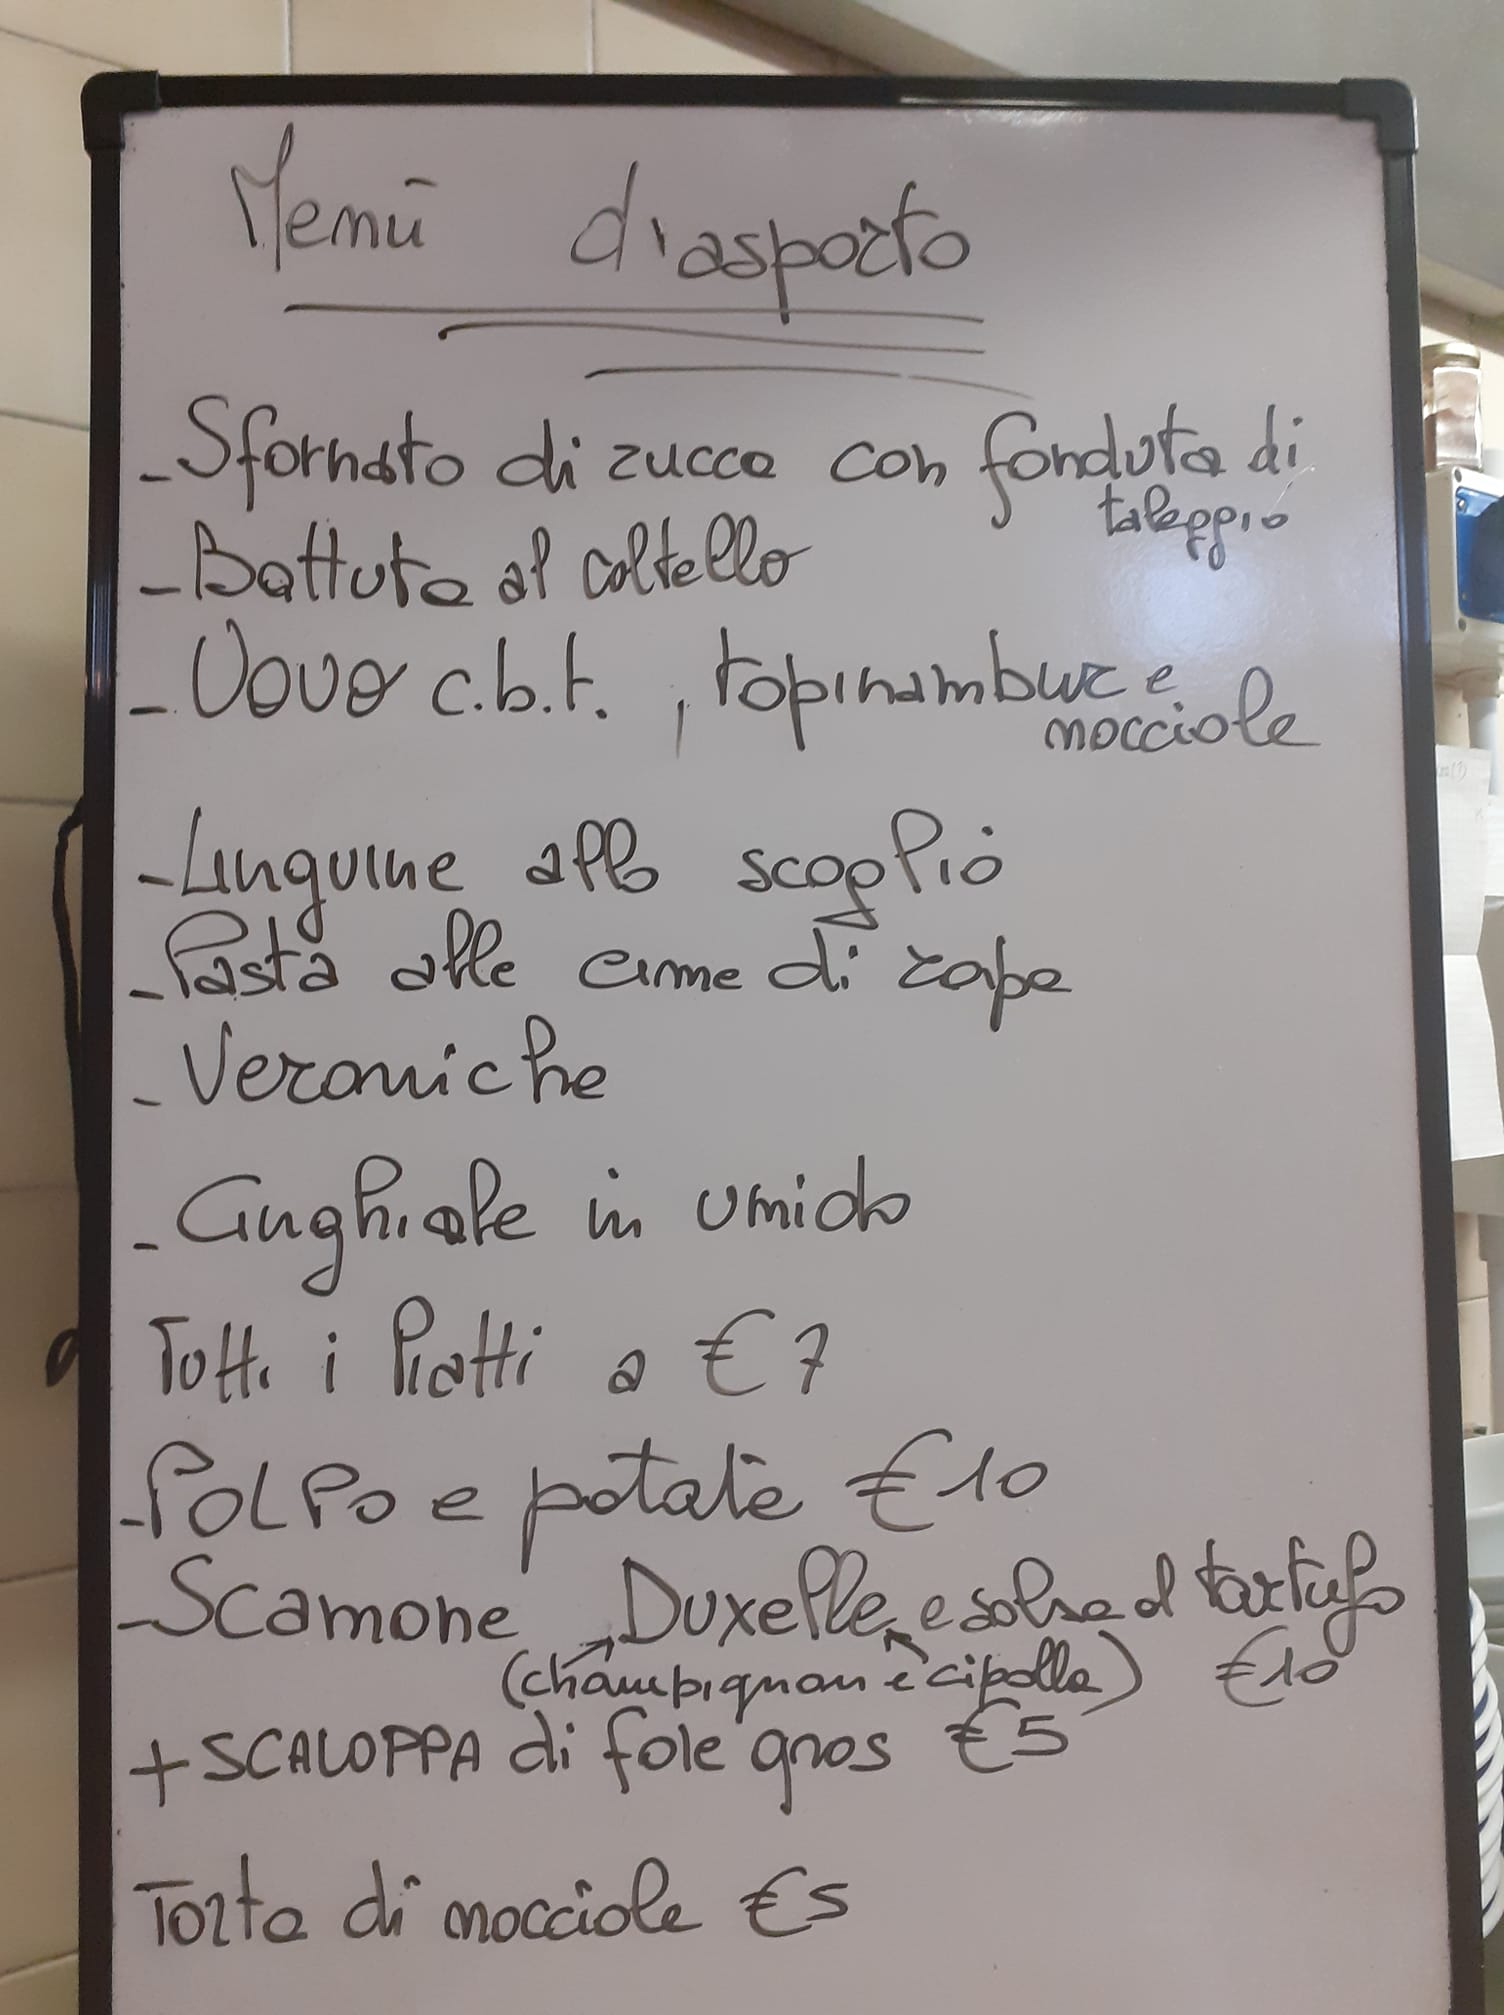 Menù d'asporto
- Sfornato di zucca con fonduta di
taleggio
- Battuta al coltello
- Uovo c.b.t., topinambur e
nocciole
- Linguine allo scoglio
- Pasta alle cime di rape
- Veroniche
- Cinghiale in umido
Tutti i Piatti a €7
- POLPO e patate €10
- Scamone, Duxelle e salsa al tartufo
(champignon e cipolla) €10
+ SCALOPPA di foie gras €5
Torta di nocciole €5